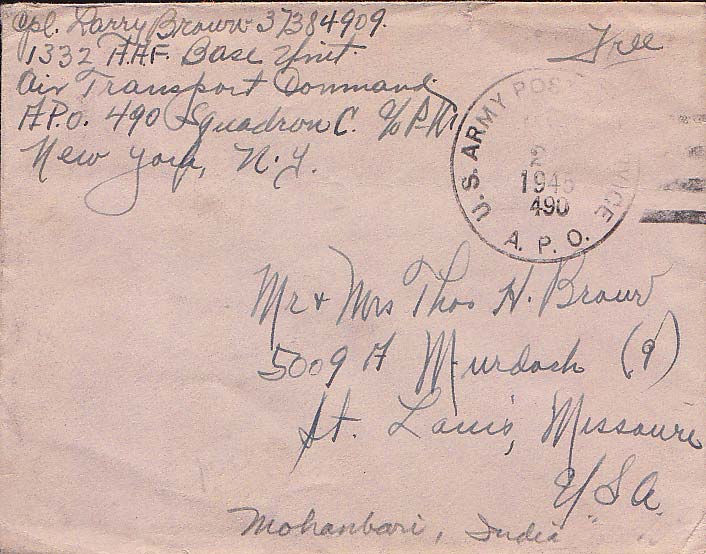 Cpl. Larry Brown 37384909.
1332 A.A.F. Base Unit.
Air Transport Command
A.P.O. 490 Squadron C. c/o P.M.
New York, N.Y.
Free
U.S. ARMY POS VICE
2
1945
490
A. P. O.
Mr & Mrs Thos H. Brown
5009 A Murdoch (9)
St. Louis, Missouri
USA
Mohanbari, India